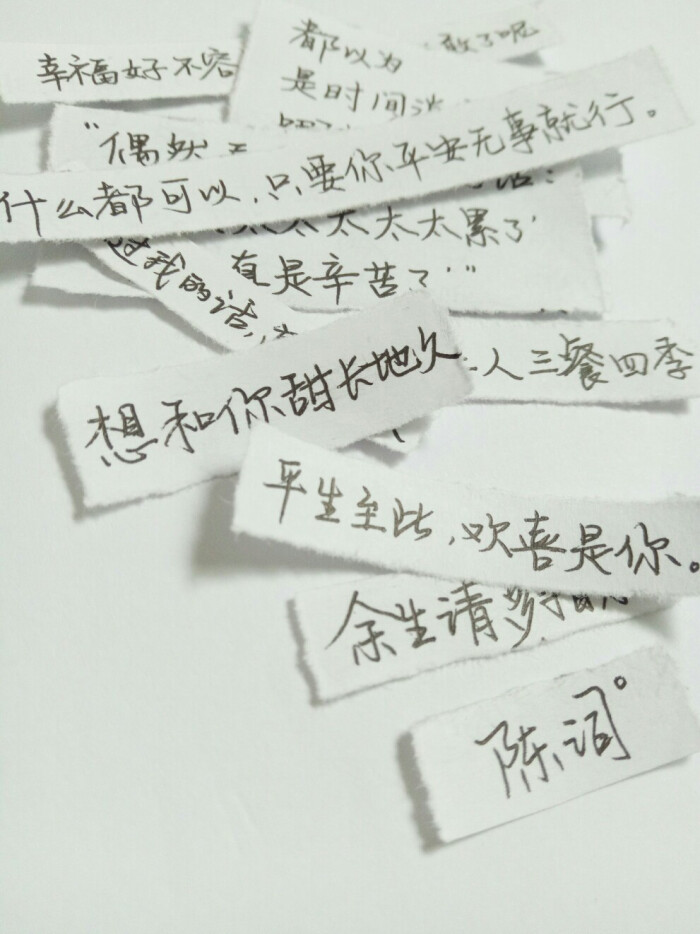 幸福好不容
都以为
是时间
敢了呢
"偶然
什么都可以，只要你平安无事就行。
太太太太累了
直是辛苦了"
过我的话，
想和你甜长地久
人三餐四季
平生至此，欢喜是你。
余生请多
陈词。